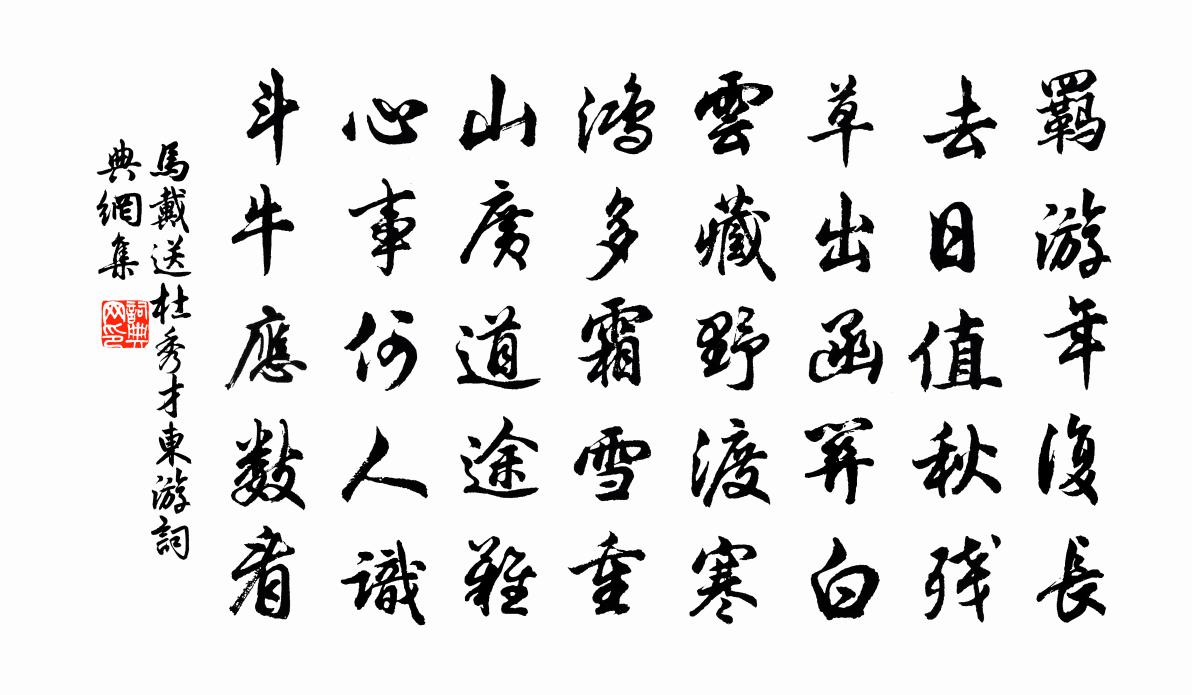 羈游年復長
去日值秋残
草出函關白
雲藏野渡寒
鴻多霜雪重
山廣道途難
心事何人識
斗牛應數看
馬戴送杜秀才東游詞
典網集
詞典
网印